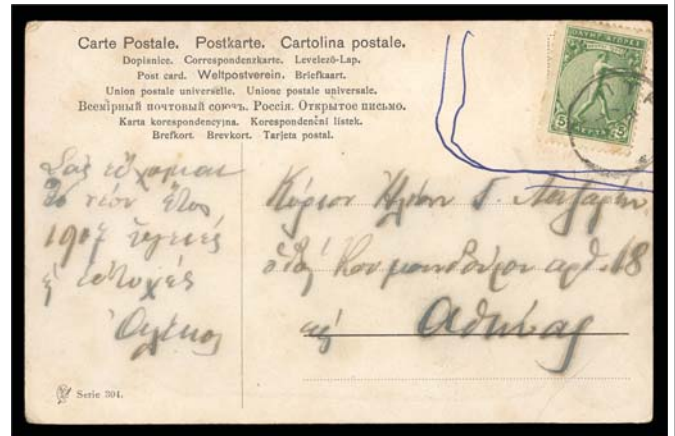 Carte Postale. Postkarte. Cartolina postale.
Dopisnice. Correspondenzkarte. Levelező-Lap.
Post card. Weltpostverein. Briefkaart.
Union postale universelle. Unione postale universale.
Всемірный почтовый союзъ. Россія. Открытое письмо.
Karta korespondencyjna. Korespondenční listek.
Brefkort. Brevkort. Tarjeta postal.
ΟΛΥΜΠ. ΑΓΩΝΕΣ
5 ΛΕΠΤΑ 5
Σας εύχομαι
το νέον έτος
1907 υγειές
ευτυχές
Κύριον Ηλίαν Γ.
οδός Κουμουνδούρου αρθ. 18
εις Αθήνας
Serie 304.